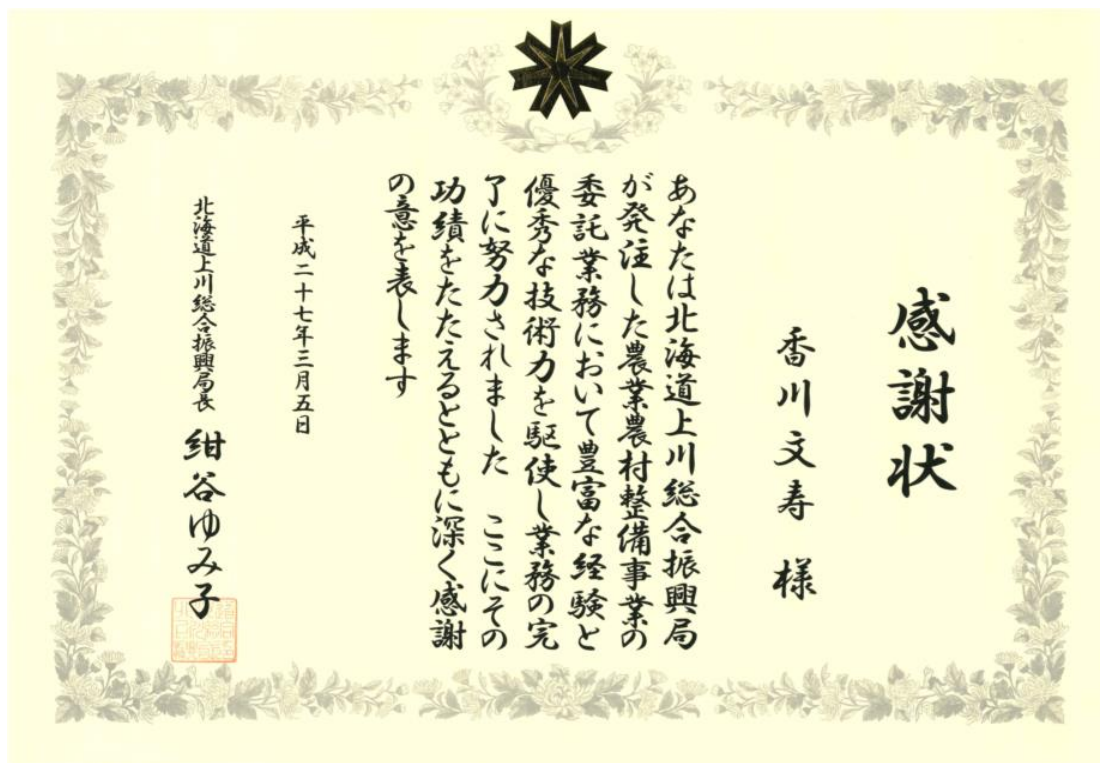 感謝状
香川文寿 様
あなたは北海道上川総合振興局
が発注した農業農村整備事業の
委託業務において豊富な経験と
優秀な技術力を駆使し業務の完
了に努力されました ここにその
功績をたたえるとともに深く感謝
の意を表します
平成二十七年三月五日
北海道上川総合振興局長 紺谷ゆみ子